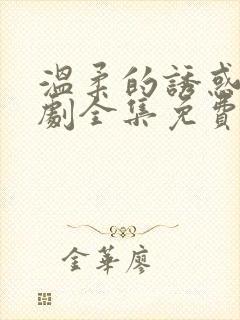 溫柔的誘惑
劇全集免費
金華廖